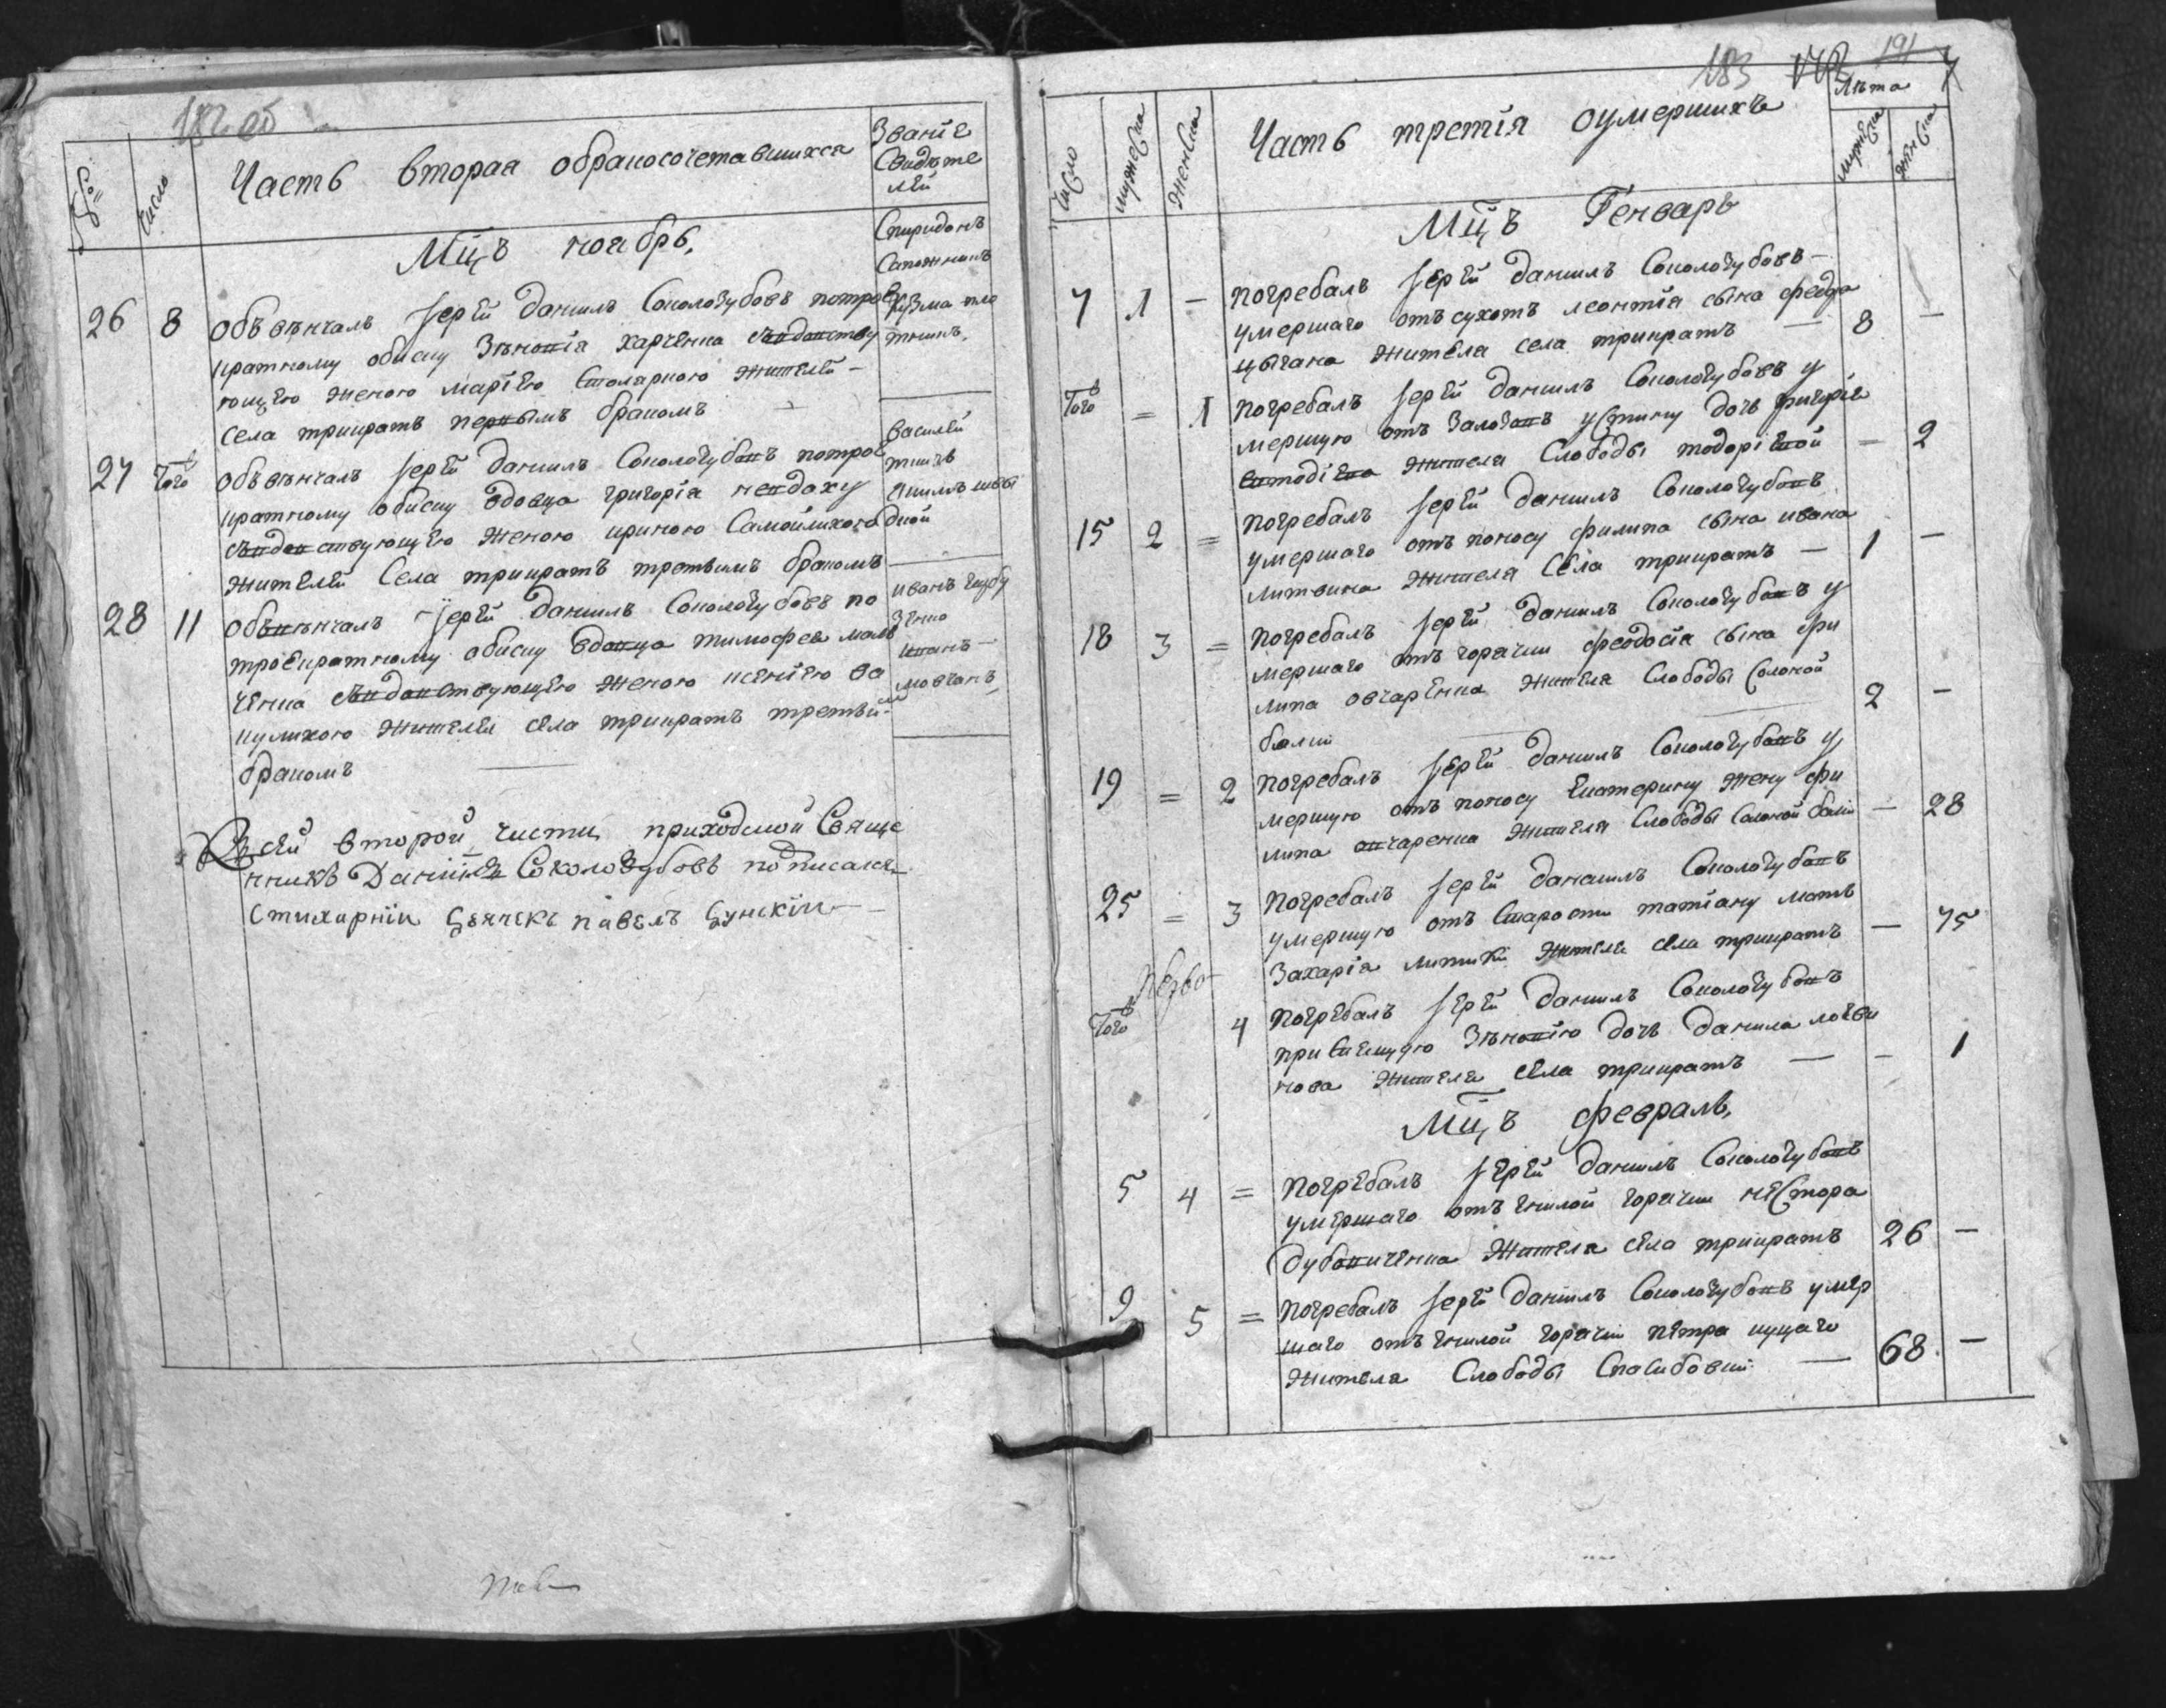 182 об
№
число
Часть вторая обракосочетавшихся
Званіе
Свидѣте
лей
Мцъ ноябрь,
26 8 Объвѣнчалъ іерей Данилъ Сокологубовъ потрое
кратному обиску Зѣновія Харченка съвдовству
ющею женою Маріею Столарною жителей –
села трикратъ первымъ бракомъ —
Спиридонъ
Сапожникъ
Кузма пло
тникъ,
27 того объвѣнчалъ іерей Данилъ Сокологубовъ потрое
кратному обиску вдовца григорія невдаху
съвдовствующею женою ириною Самойлихою
жителей Села трикратъ третьимъ бракомъ
Василей
28 11 объвѣнчалъ іерей Данилъ Сокологубовъ по
троекратному обиску вдовца тимофея мал
ченка съвдовствующею женою ксеніею ва
кулихою жителей села трикратъ третьи-
бракомъ —
иванъ
иванъ —
мовчанъ,
Въ сей второй части, приходской Свяще
нникъ Даниилъ Сокологубовъ подписался
Стихарній Дячекъ павелъ
183 191
число
мужеска
женска
Часть третія оумершихъ
лѣта
мужеска
женска
Мцъ Генварь
7 1 — погребалъ іерей данилъ Сокологубовъ —
умершаго отъ сухотъ леонтія сына федора
цыгана жителя села трикратъ — 8 —
того = 1 погребалъ іерей данилъ Сокологубовъ у
мершую отъ устину дочь григорія
жителя Слободы — 2
15 2 = погребалъ іерей данилъ Сокологубовъ
умершаго отъ поносу филипа сына ивана
литвина жителя Села трикратъ — 1 —
18 3 = погребалъ іерей данилъ Сокологубовъ у
мершаго отъ горячки феодосія сына фи
липа овчаренка жителя Слободы Солоной
балки — 2 —
19 = 2 погребалъ іерей данилъ Сокологубовъ у
мершую отъ поносу Екатерину жену фи
липа овчаренка жителя Слободы Солоной балки — 28
25 = 3 погребалъ іерей данилъ Сокологубовъ
умершую отъ Старости татіану мать
Захарія жителя села трикратъ — 75
того 4 погребалъ іерей данилъ Сокологубовъ
Зѣновію дочь данила
нова жителя села трикратъ — — 1
Мцъ февраль,
5 4 = погребалъ іерей данилъ Сокологубовъ
умершаго отъ гнилой горячки нестора
дубовиченка жителя села трикратъ 26 —
9 5 = погребалъ іерей данилъ Сокологубовъ умер
шаго отъ гнилой горячки петра куцаго
жителя Слободы Спасибовки — 68 —